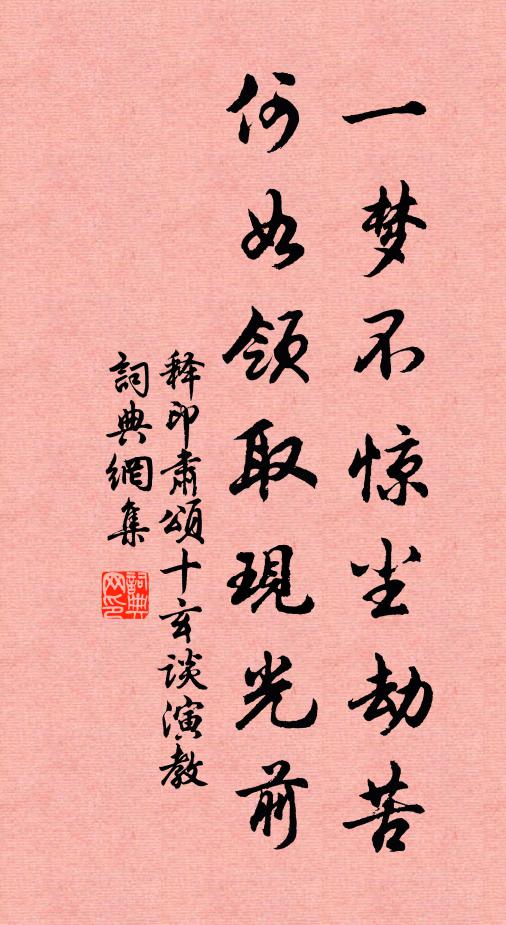 一梦不惊尘劫苦
何如领取現光前
释印肃頌十玄谈演教
詞典網集
詞典网印